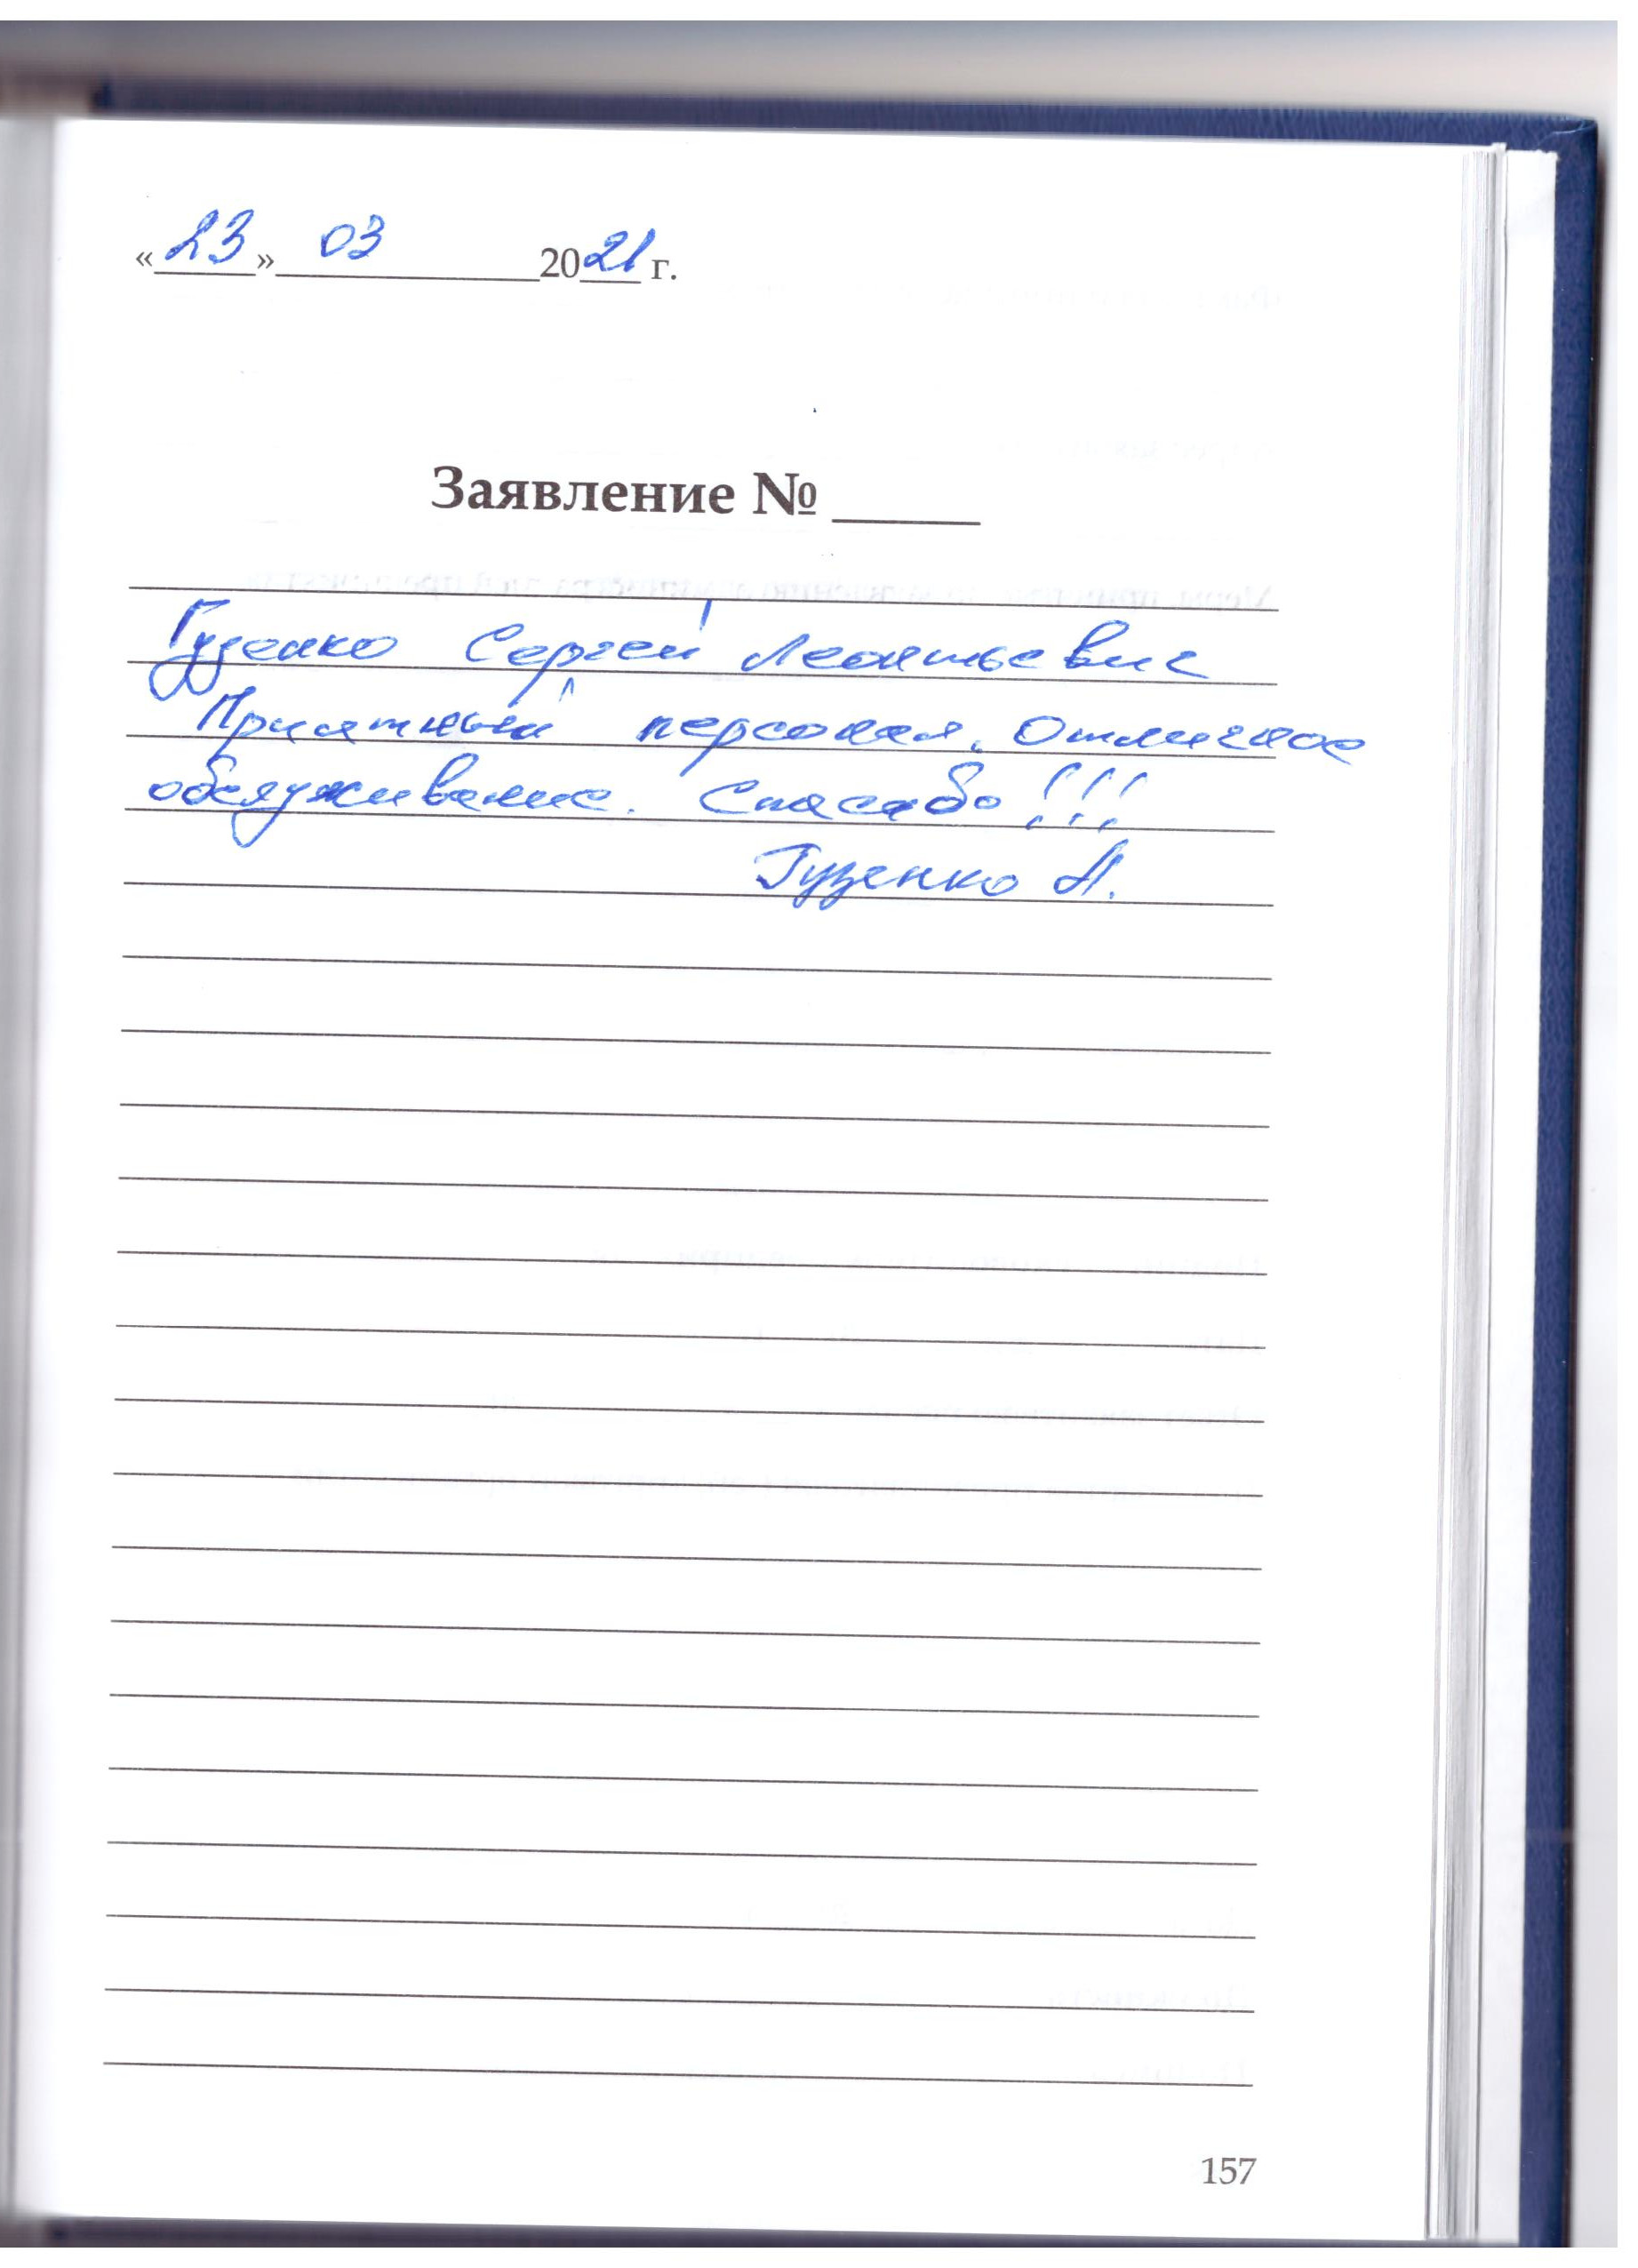 «23» 03 2021 г.
Заявление № _____
Гузенко Сергей Леонтьевич
Приятный персонал. Отличное
обслуживание. Спасибо!!!
Гузенко А.
157